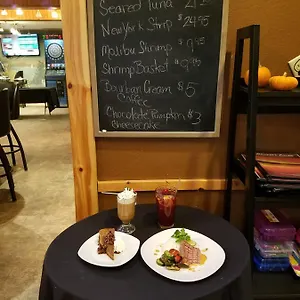 Seared Tuna
New York Strip $24.95
Malibu Shrimp $9.95
Shrimp Basket $9.95
Bourbon Cream $5
Coffee
Chocolate Pumpkin $3
Cheesecake